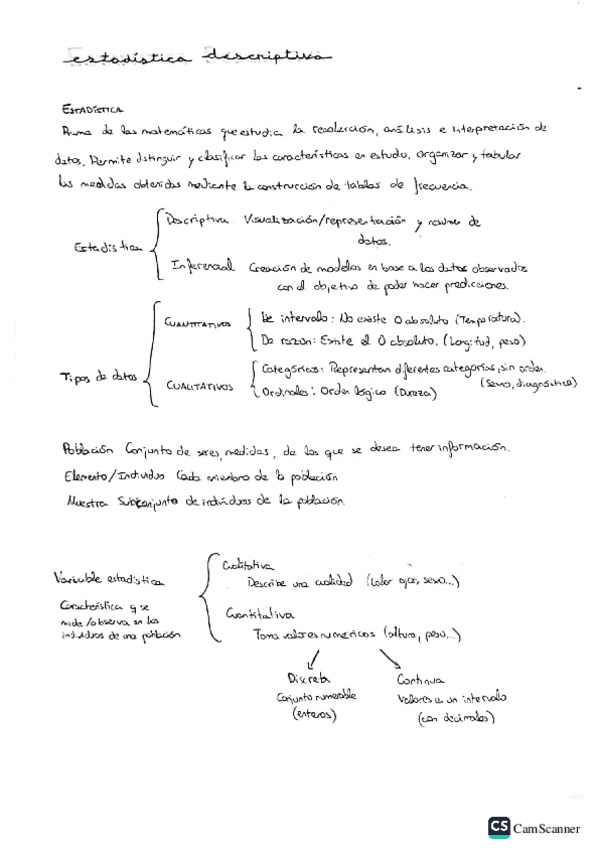 estadística descriptiva
ESTADÍSTICA
Rama de las matemáticas que estudia la recolección, análisis e interpretación de
datos. Permite distinguir y clasificar las características en estudio, organizar y tabular
las medidas obtenidas mediante la construcción de tablas de frecuencia.
Estadística
Descriptiva Visualización/representación y resumen de
datos.
Inferencial Creación de modelos en base a los datos observados
con el objetivo de poder hacer predicciones.
Tipos de datos
CUANTITATIVOS
De intervalo: No existe 0 absoluto (Temperatura).
De razón: Existe el 0 absoluto. (Longitud, peso)
CUALITATIVOS
Categóricos: Representan diferentes categorías, sin orden.
(Sexo, diagnóstico)
Ordinales: Orden lógico (Dureza)
Población Conjunto de seres, medidas, de los que se desea tener información.
Elemento/Individuo Cada miembro de la población
Muestra Subconjunto de individuos de la población.
Variable estadística
Característica q se
mide/observa en los
individuos de una población
Cualitativa
Describe una cualidad (color ojos, sexo...)
Cuantitativa
Toma valores numéricos (altura, peso...)
Discreta
Conjunto numerable
(enteros)
Continua
Valores en un intervalo
(con decimales)
CS CamScanner